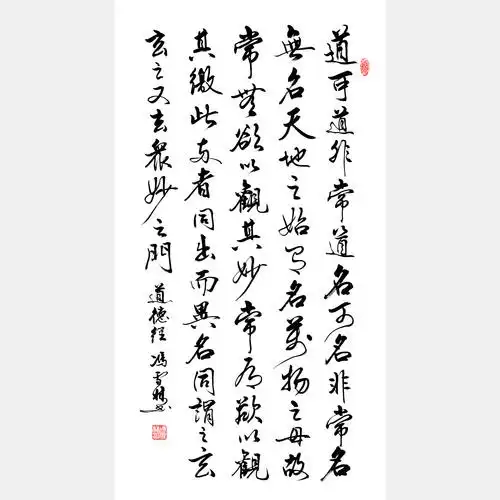 道可道非常道名可名非常名
無名天地之始有名萬物之母故
常無欲以觀其妙常有欲以觀
其徼此兩者同出而異名同謂之玄
玄之又玄眾妙之門
道德經 馮雪林书